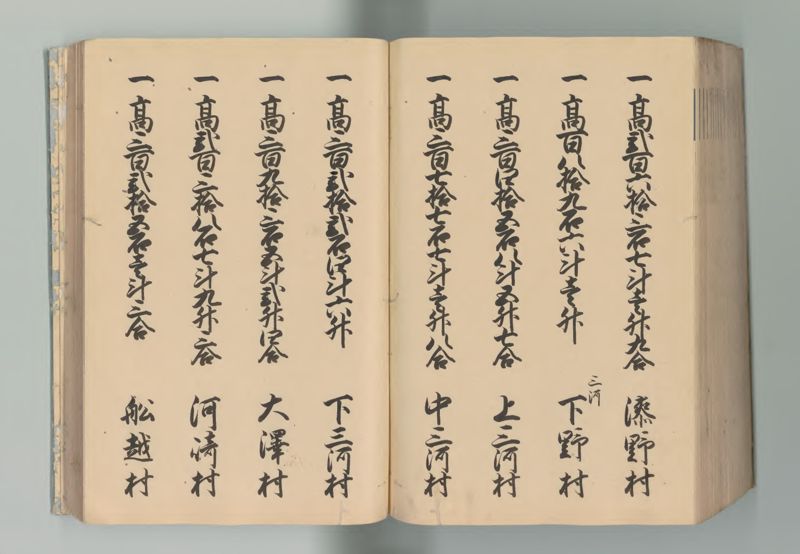 一高弐百六拾三石七斗壱升九合 漆野村
一高百八拾九石六斗壱升 三河 下野村
一高三百四拾五石八斗五升七合 上三河村
一高三百七拾七石七斗壱升八合 中三河村
一高三百弐拾弐石四斗六升 下三河村
一高三百九拾三石五斗弐升四合 大澤村
一高弐百三拾八石七斗九升三合 河崎村
一高三百弐拾五石壱斗三合 船越村